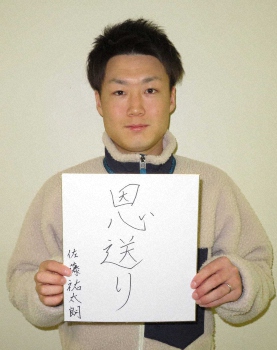 恩送り
佐藤祐太朗